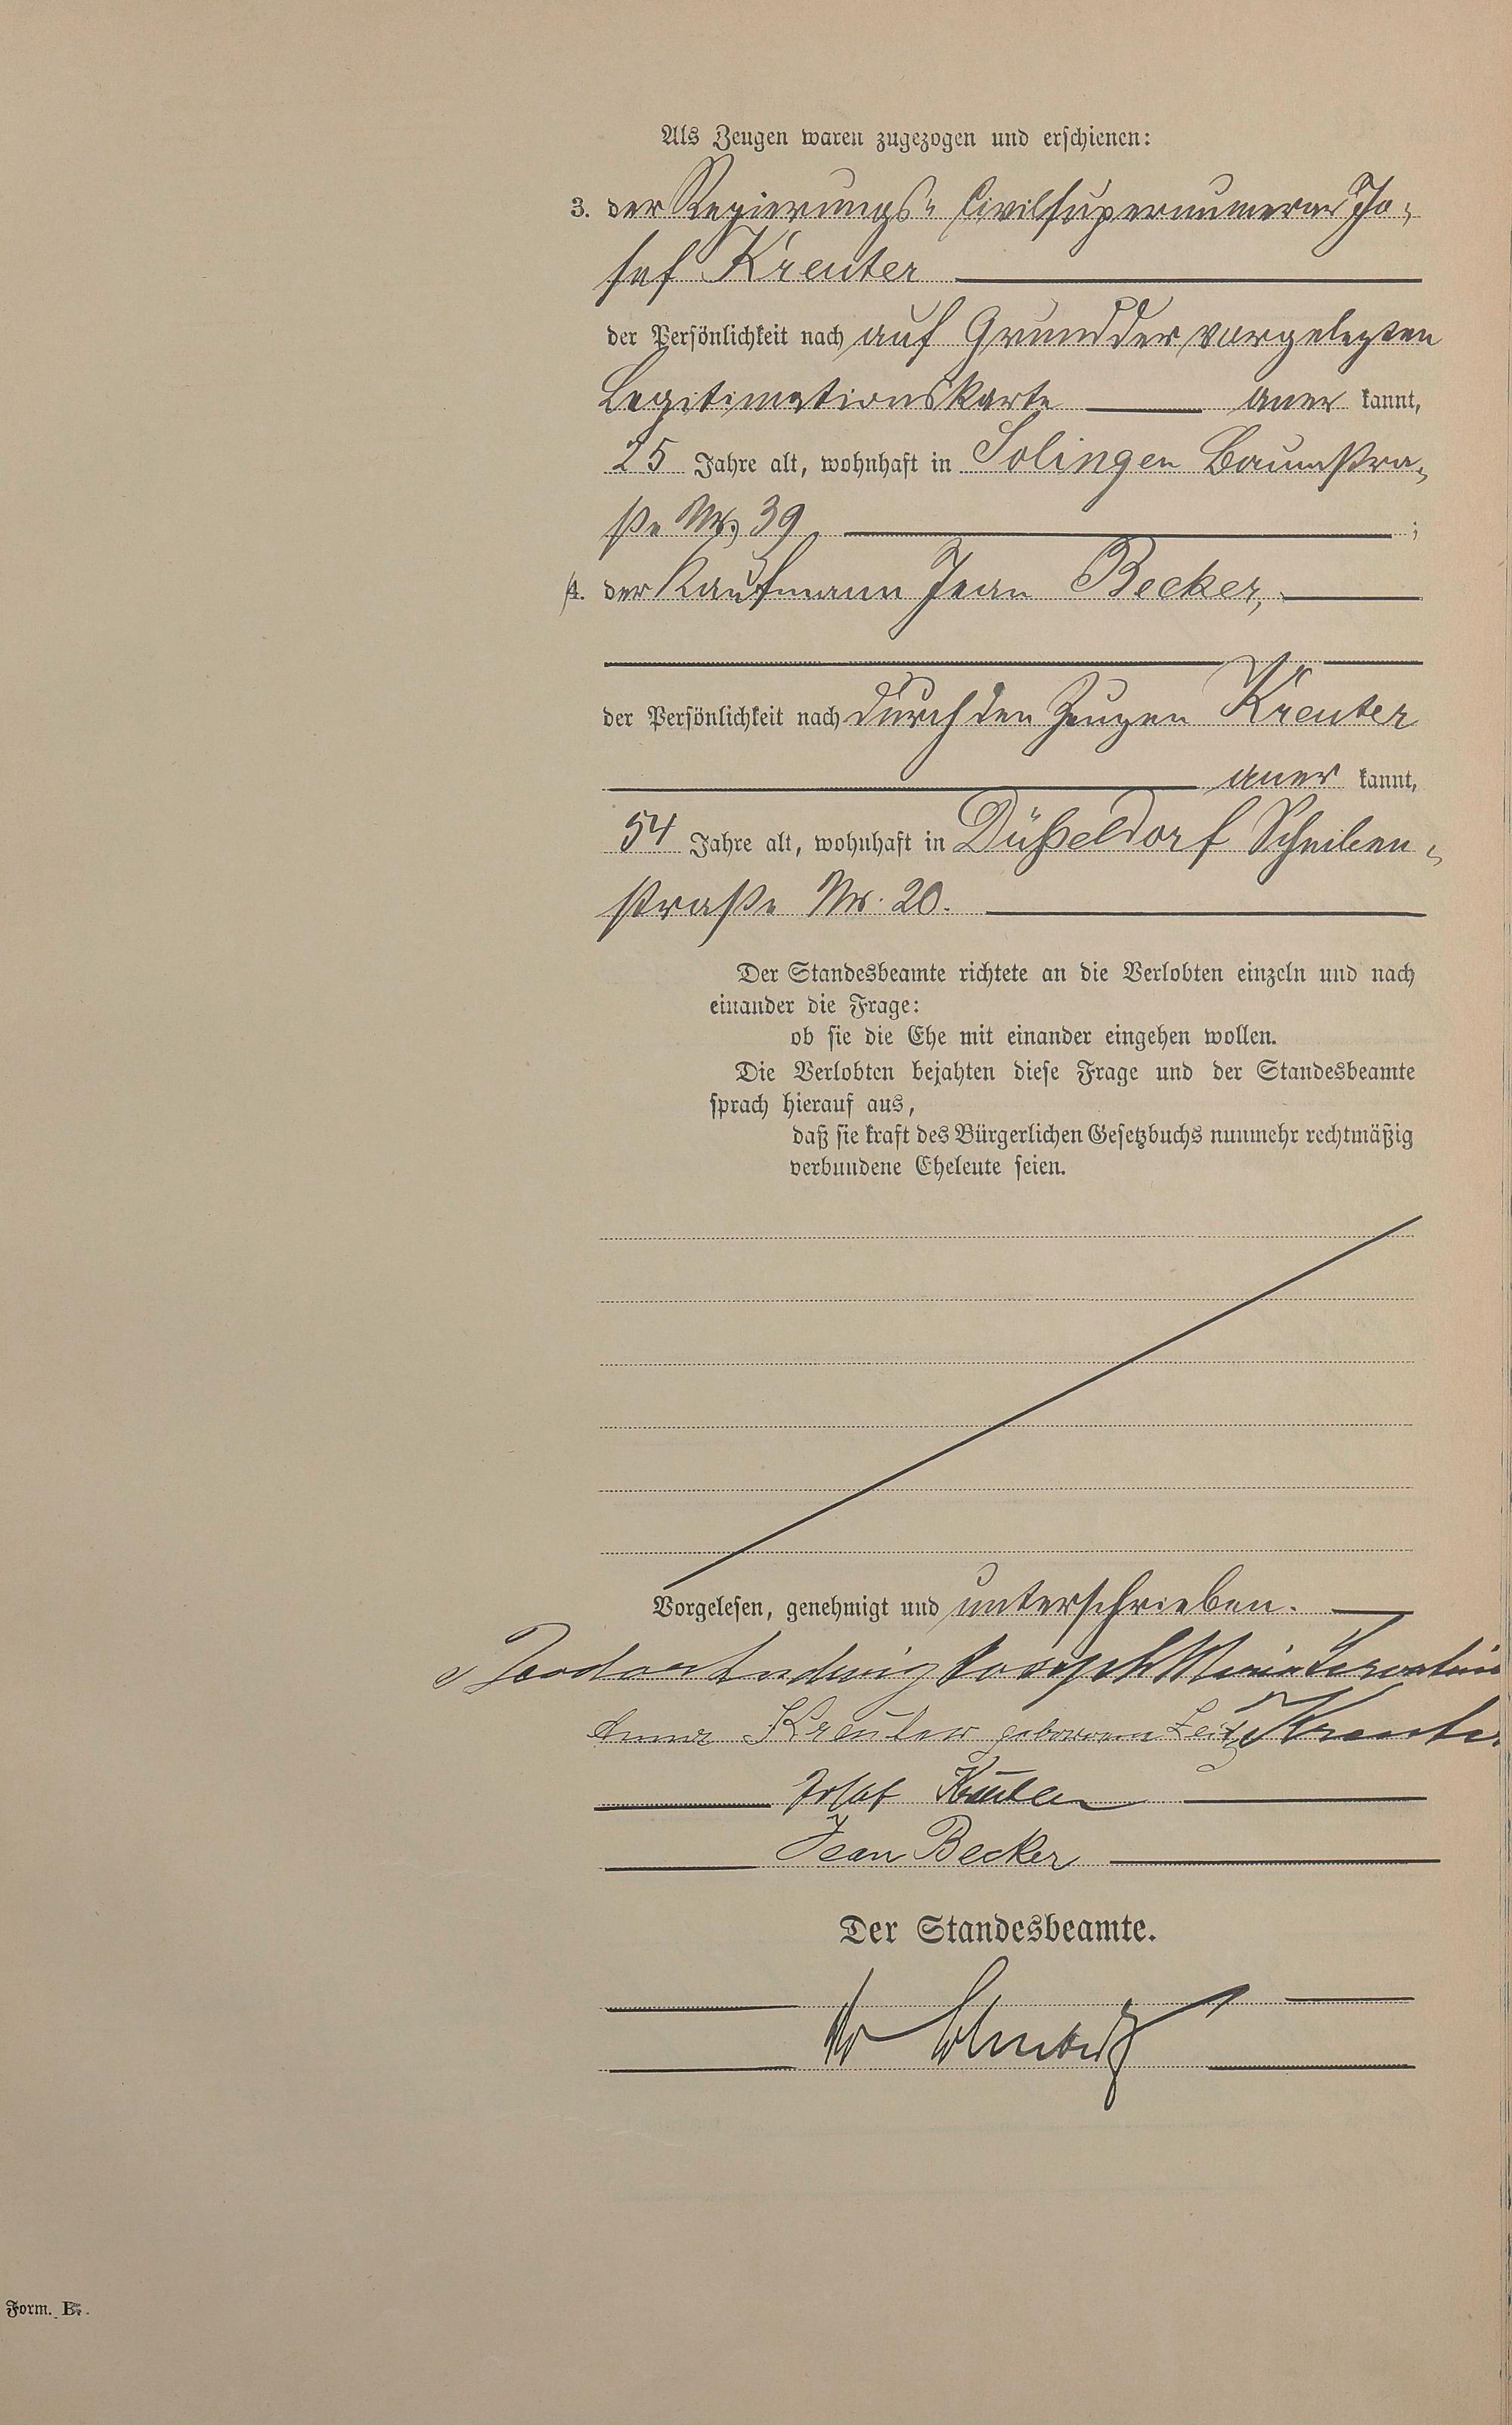 Als Zeugen waren zugezogen und erschienen:
3. der Regierungs- Civilsupernumerar Jo-
sef Kreuter
der Persönlichkeit nach auf Grund der vorgelegten
Legitimationskarte aner kannt,
25 Jahre alt, wohnhaft in Solingen Baumstra-
ße Nr. 39 ;
4. der Kaufmann Jean Becker,
der Persönlichkeit nach durch den Zeugen Kreuter
aner kannt,
54 Jahre alt, wohnhaft in Düßeldorf Scheiben-
straße Nr. 20.
Der Standesbeamte richtete an die Verlobten einzeln und nach
einander die Frage:
ob sie die Ehe mit einander eingehen wollen.
Die Verlobten bejahten diese Frage und der Standesbeamte
sprach hierauf aus,
daß sie kraft des Bürgerlichen Gesetzbuchs nunmehr rechtmäßig
verbundene Eheleute seien.
Vorgelesen, genehmigt und unterschrieben.
Theodor Ludwig Joseph Maria Servatius
Anna Kreuter geborene Leitz Kreuter
Josef Kreuter
Jean Becker
Der Standesbeamte.
Form. B.